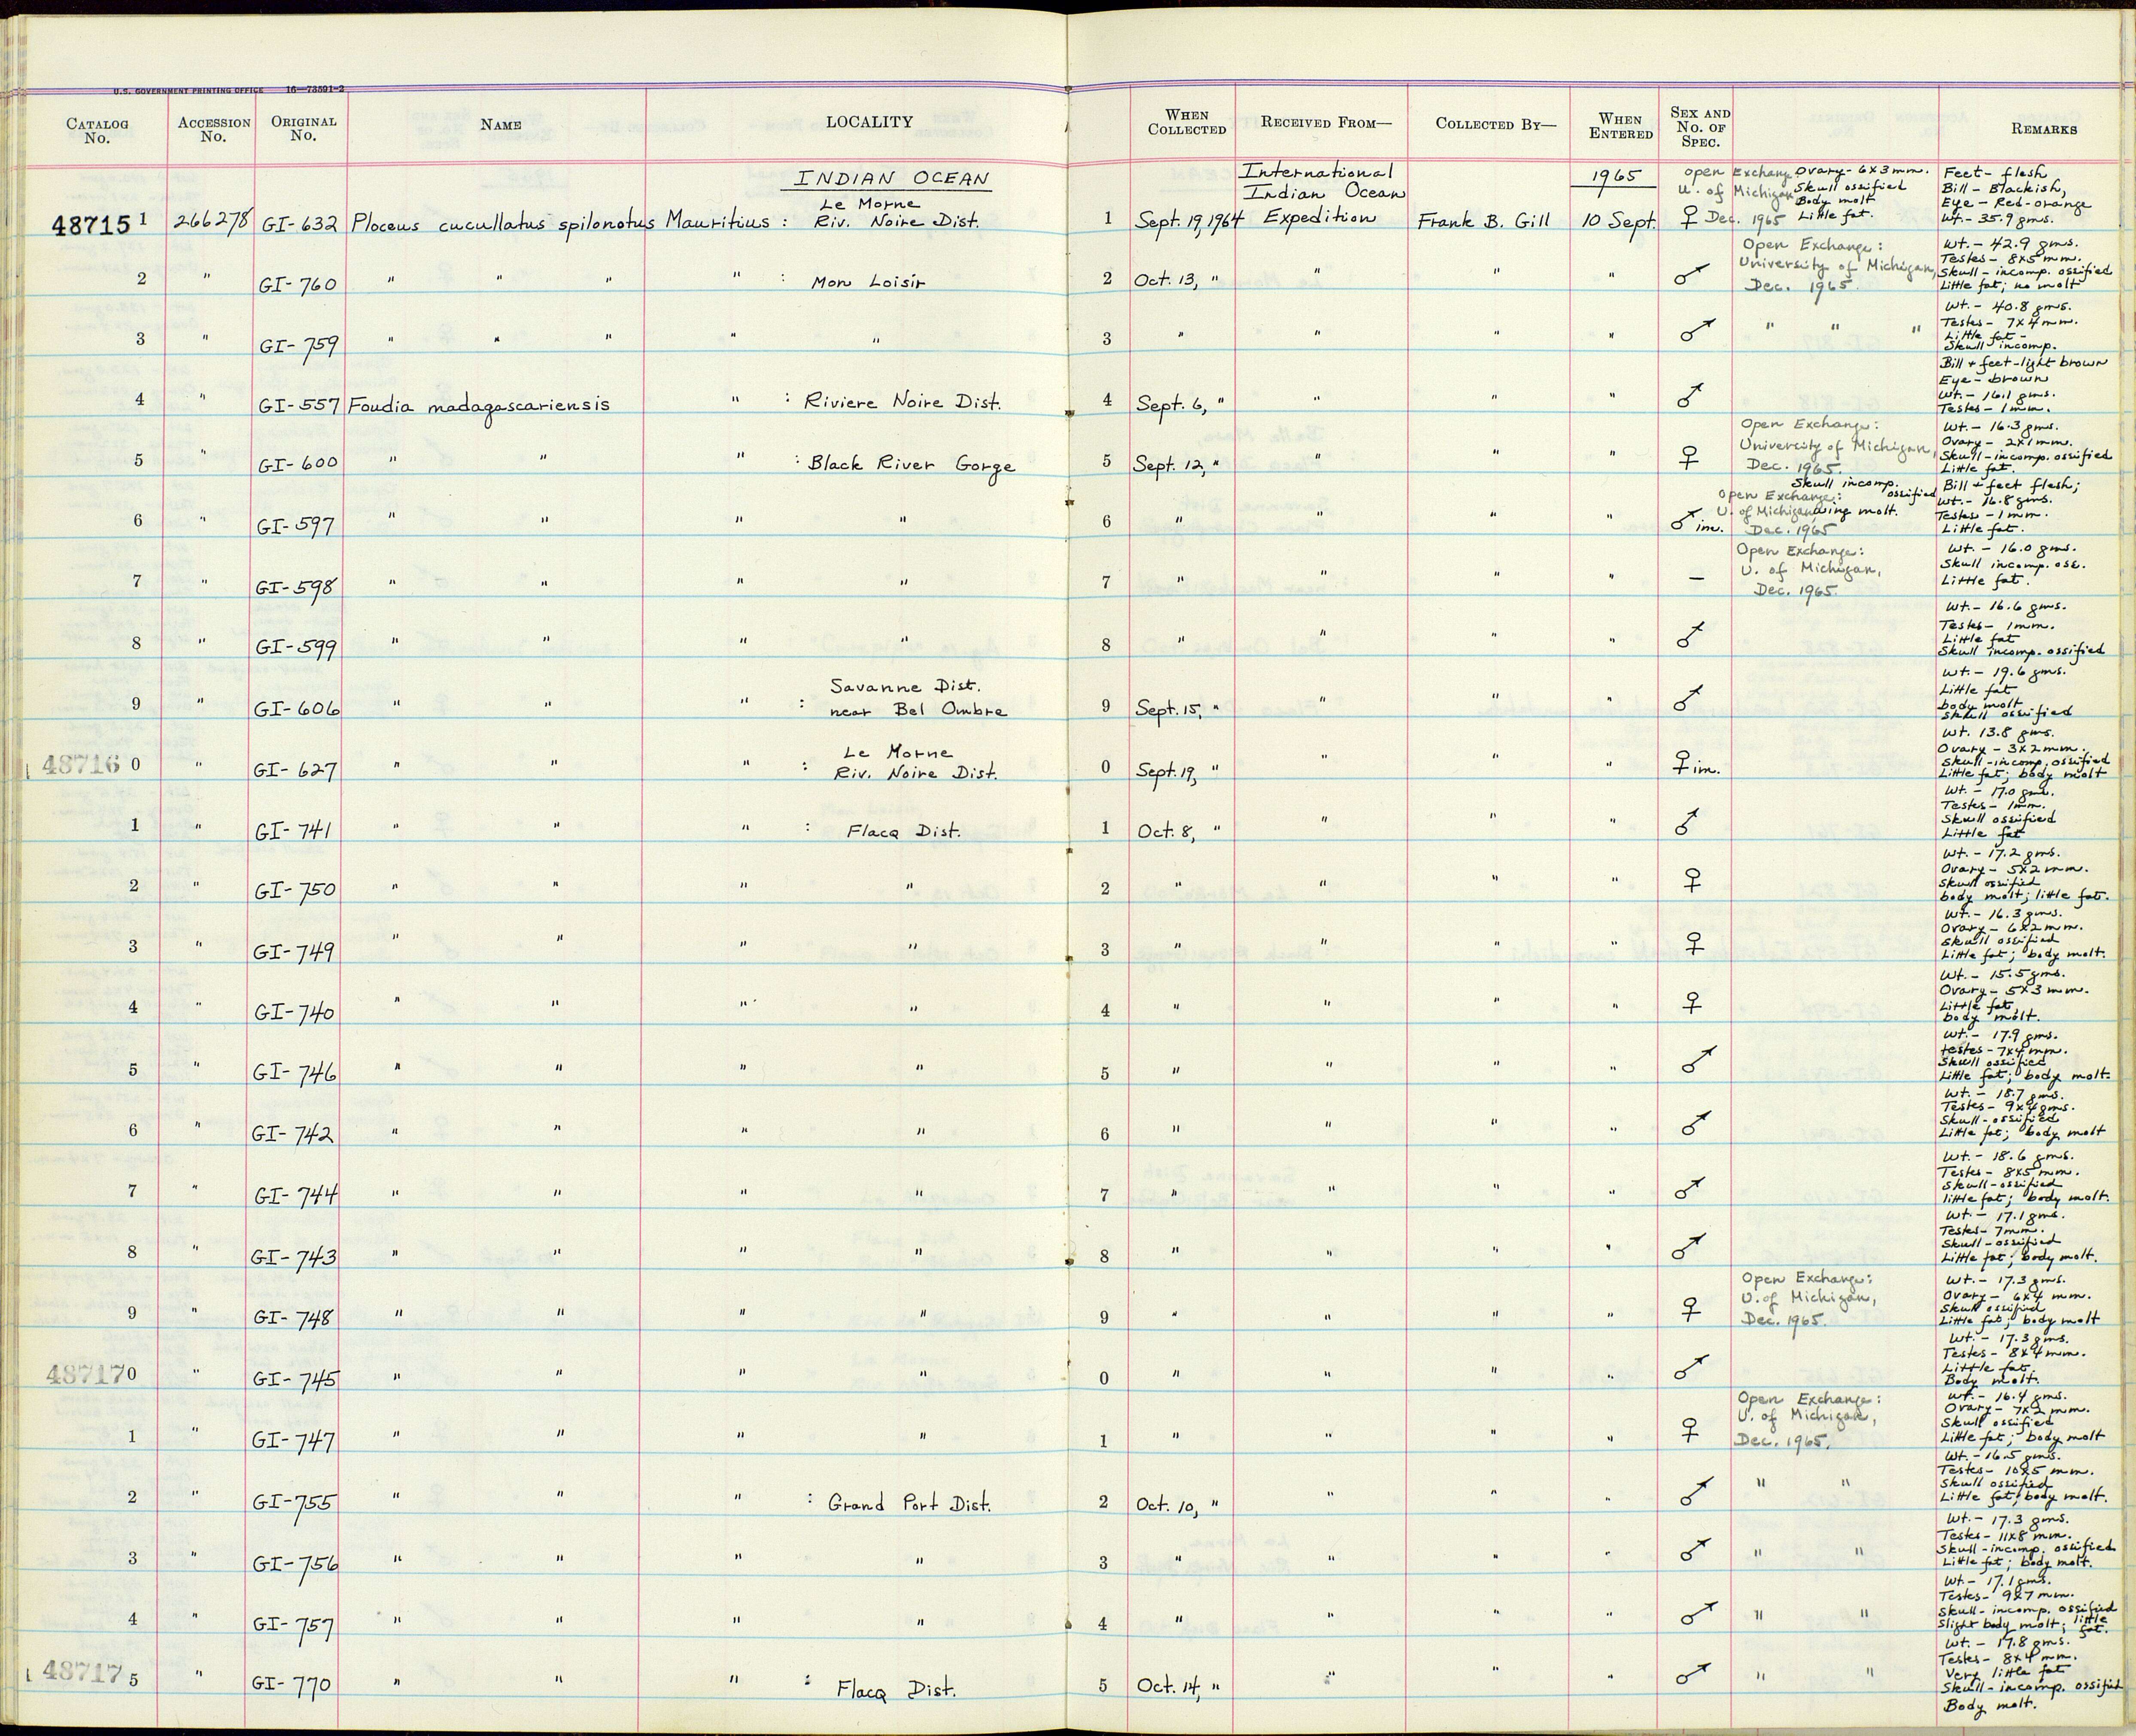 U.S. GOVERNMENT PRINTING OFFICE 16—73591-2
CATALOG No. ACCESSION No. ORIGINAL No. NAME LOCALITY WHEN COLLECTED RECEIVED FROM— COLLECTED BY— WHEN ENTERED SEX AND No. OF SPEC. REMARKS
INDIAN OCEAN International Indian Ocean 1965
48715 1 266278 GI-632 Ploceus cucullatus spilonotus Mauritius : Le Morne Riv. Noire Dist. 1 Sept. 19, 1964 Expedition Frank B. Gill 10 Sept. ♀ Open Exchange U. of Michigan Dec. 1965 Ovary - 6x3 mm. Skull ossified Body molt Little fat. Feet - flesh Bill - Blackish, Eye - Red-orange Wt. - 35.9 gms.
2 " GI-760 " " " " : Mon Loisir 2 Oct. 13, " " " " ♂ Open Exchange: University of Michigan, Dec. 1965. Wt. - 42.9 gms. Testes - 8x5 mm. Skull - incomp. ossified Little fat; no molt
3 " GI-759 " " " " " 3 " " " " ♂ " " " Wt. - 40.8 gms. Testes - 7x4 mm. Little fat - Skull incomp.
4 " GI-557 Foudia madagascariensis " : Riviere Noire Dist. 4 Sept. 6, " " " " ♂ Bill + feet - light brown Eye - brown Wt. - 16.1 gms. Testes - 1 mm.
5 " GI-600 " " " : Black River Gorge 5 Sept. 12, " " " " ♀ Open Exchange: University of Michigan, Dec. 1965. Wt. - 16.3 gms. Ovary - 2x1 mm. Skull - incomp. ossified Little fat.
6 " GI-597 " " " " 6 " " " " ♂ im. Open Exchange: U. of Michigan, Dec. 1965 Skull incomp. ossified wing molt. Bill + feet flesh; Wt. - 16.8 gms. Testes - 1 mm. Little fat.
7 " GI-598 " " " " 7 " " " " — Open Exchange: U. of Michigan, Dec. 1965. Wt. - 16.0 gms. Skull incomp. oss. Little fat.
8 " GI-599 " " " " 8 " " " " ♂ Wt. - 16.6 gms. Testes - 1 mm. Little fat Skull incomp. ossified
9 " GI-606 " " " : Savanne Dist. near Bel Ombre 9 Sept. 15, " " " " ♂ Wt. - 19.6 gms. Little fat body molt Skull ossified
48716 0 " GI-627 " " " : Le Morne Riv. Noire Dist. 0 Sept. 19, " " " " ♀ im. Wt. 13.8 gms. Ovary - 3x2 mm. Skull - incomp. ossified Little fat; body molt
1 " GI-741 " " " : Flacq Dist. 1 Oct. 8, " " " " ♂ Wt. - 17.0 gms. Testes - 1 mm. Skull ossified Little fat
2 " GI-750 " " " " 2 " " " " ♀ Wt. - 17.2 gms. Ovary - 5x2 mm. Skull ossified body molt; little fat.
3 " GI-749 " " " " 3 " " " " ♀ Wt. - 16.3 gms. Ovary - 6x2 mm. Skull ossified Little fat; body molt.
4 " GI-740 " " " " 4 " " " " ♀ Wt. - 15.5 gms. Ovary - 5x3 mm. Little fat, body molt.
5 " GI-746 " " " " 5 " " " " ♂ Wt. - 17.9 gms. testes - 7x4 mm. Skull ossified Little fat; body molt.
6 " GI-742 " " " " 6 " " " " ♂ Wt. - 18.7 gms. Testes - 9x4 gms. Skull - ossified Little fat; body molt
7 " GI-744 " " " " 7 " " " " ♂ Wt. - 18.6 gms. Testes - 8x5 mm. Skull - ossified little fat; body molt.
8 " GI-743 " " " " 8 " " " " ♂ Wt. - 17.1 gms. Testes - 7 mm. Skull - ossified Little fat; body molt.
9 " GI-748 " " " " 9 " " " " ♀ Open Exchange: U. of Michigan, Dec. 1965. Wt. - 17.3 gms. Ovary - 6x4 mm. Skull ossified Little fat; body molt
48717 0 " GI-745 " " " " 0 " " " " ♂ Wt. - 17.3 gms. Testes - 8x4 mm. Little fat. Body molt.
1 " GI-747 " " " " 1 " " " " ♀ Open Exchange: U. of Michigan, Dec. 1965. Wt. - 16.4 gms. Ovary - 7x2 mm. Skull ossified Little fat; body molt
2 " GI-755 " " " : Grand Port Dist. 2 Oct. 10, " " " " ♂ " " Wt. - 16.5 gms. Testes - 10x5 mm. Skull ossified Little fat; body molt.
3 " GI-756 " " " " 3 " " " " ♂ " " Wt. - 17.3 gms. Testes - 11x8 mm. Skull - incomp. ossified Little fat; body molt.
4 " GI-757 " " " " 4 " " " " ♂ " " Wt. - 17.1 gms. Testes - 9x7 mm. Skull - incomp. ossified Slight body molt; little fat.
48717 5 " GI-770 " " " : Flacq Dist. 5 Oct. 14, " " " " ♂ " " Wt. - 17.8 gms. Testes - 8x4 mm. Very little fat Skull - incomp. ossified Body molt.